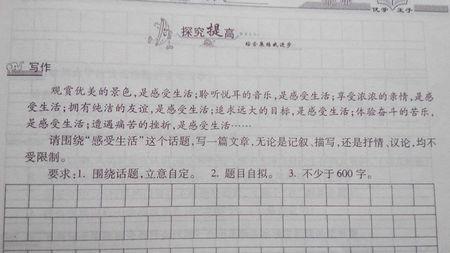 优学 王子
探究提高
综合集结成进步
写作
观赏优美的景色,是感受生活;聆听悦耳的音乐,是感受生活;享受浓浓的亲情,是感
受生活;拥有纯洁的友谊,是感受生活;追求远大的目标,是感受生活;体验奋斗的苦乐,
是感受生活;遭遇痛苦的挫折,是感受生活……
请围绕“感受生活”这个话题,写一篇文章,无论是记叙、描写,还是抒情、议论,均不
受限制。
要求:1. 围绕话题,立意自定。 2. 题目自拟。 3. 不少于600字。